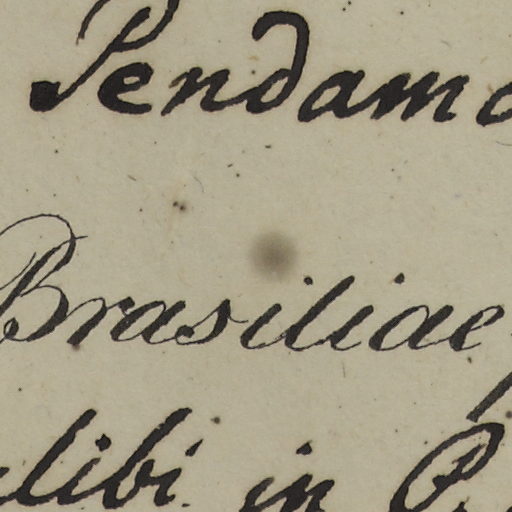 Pendam
Brasiliae
libi in